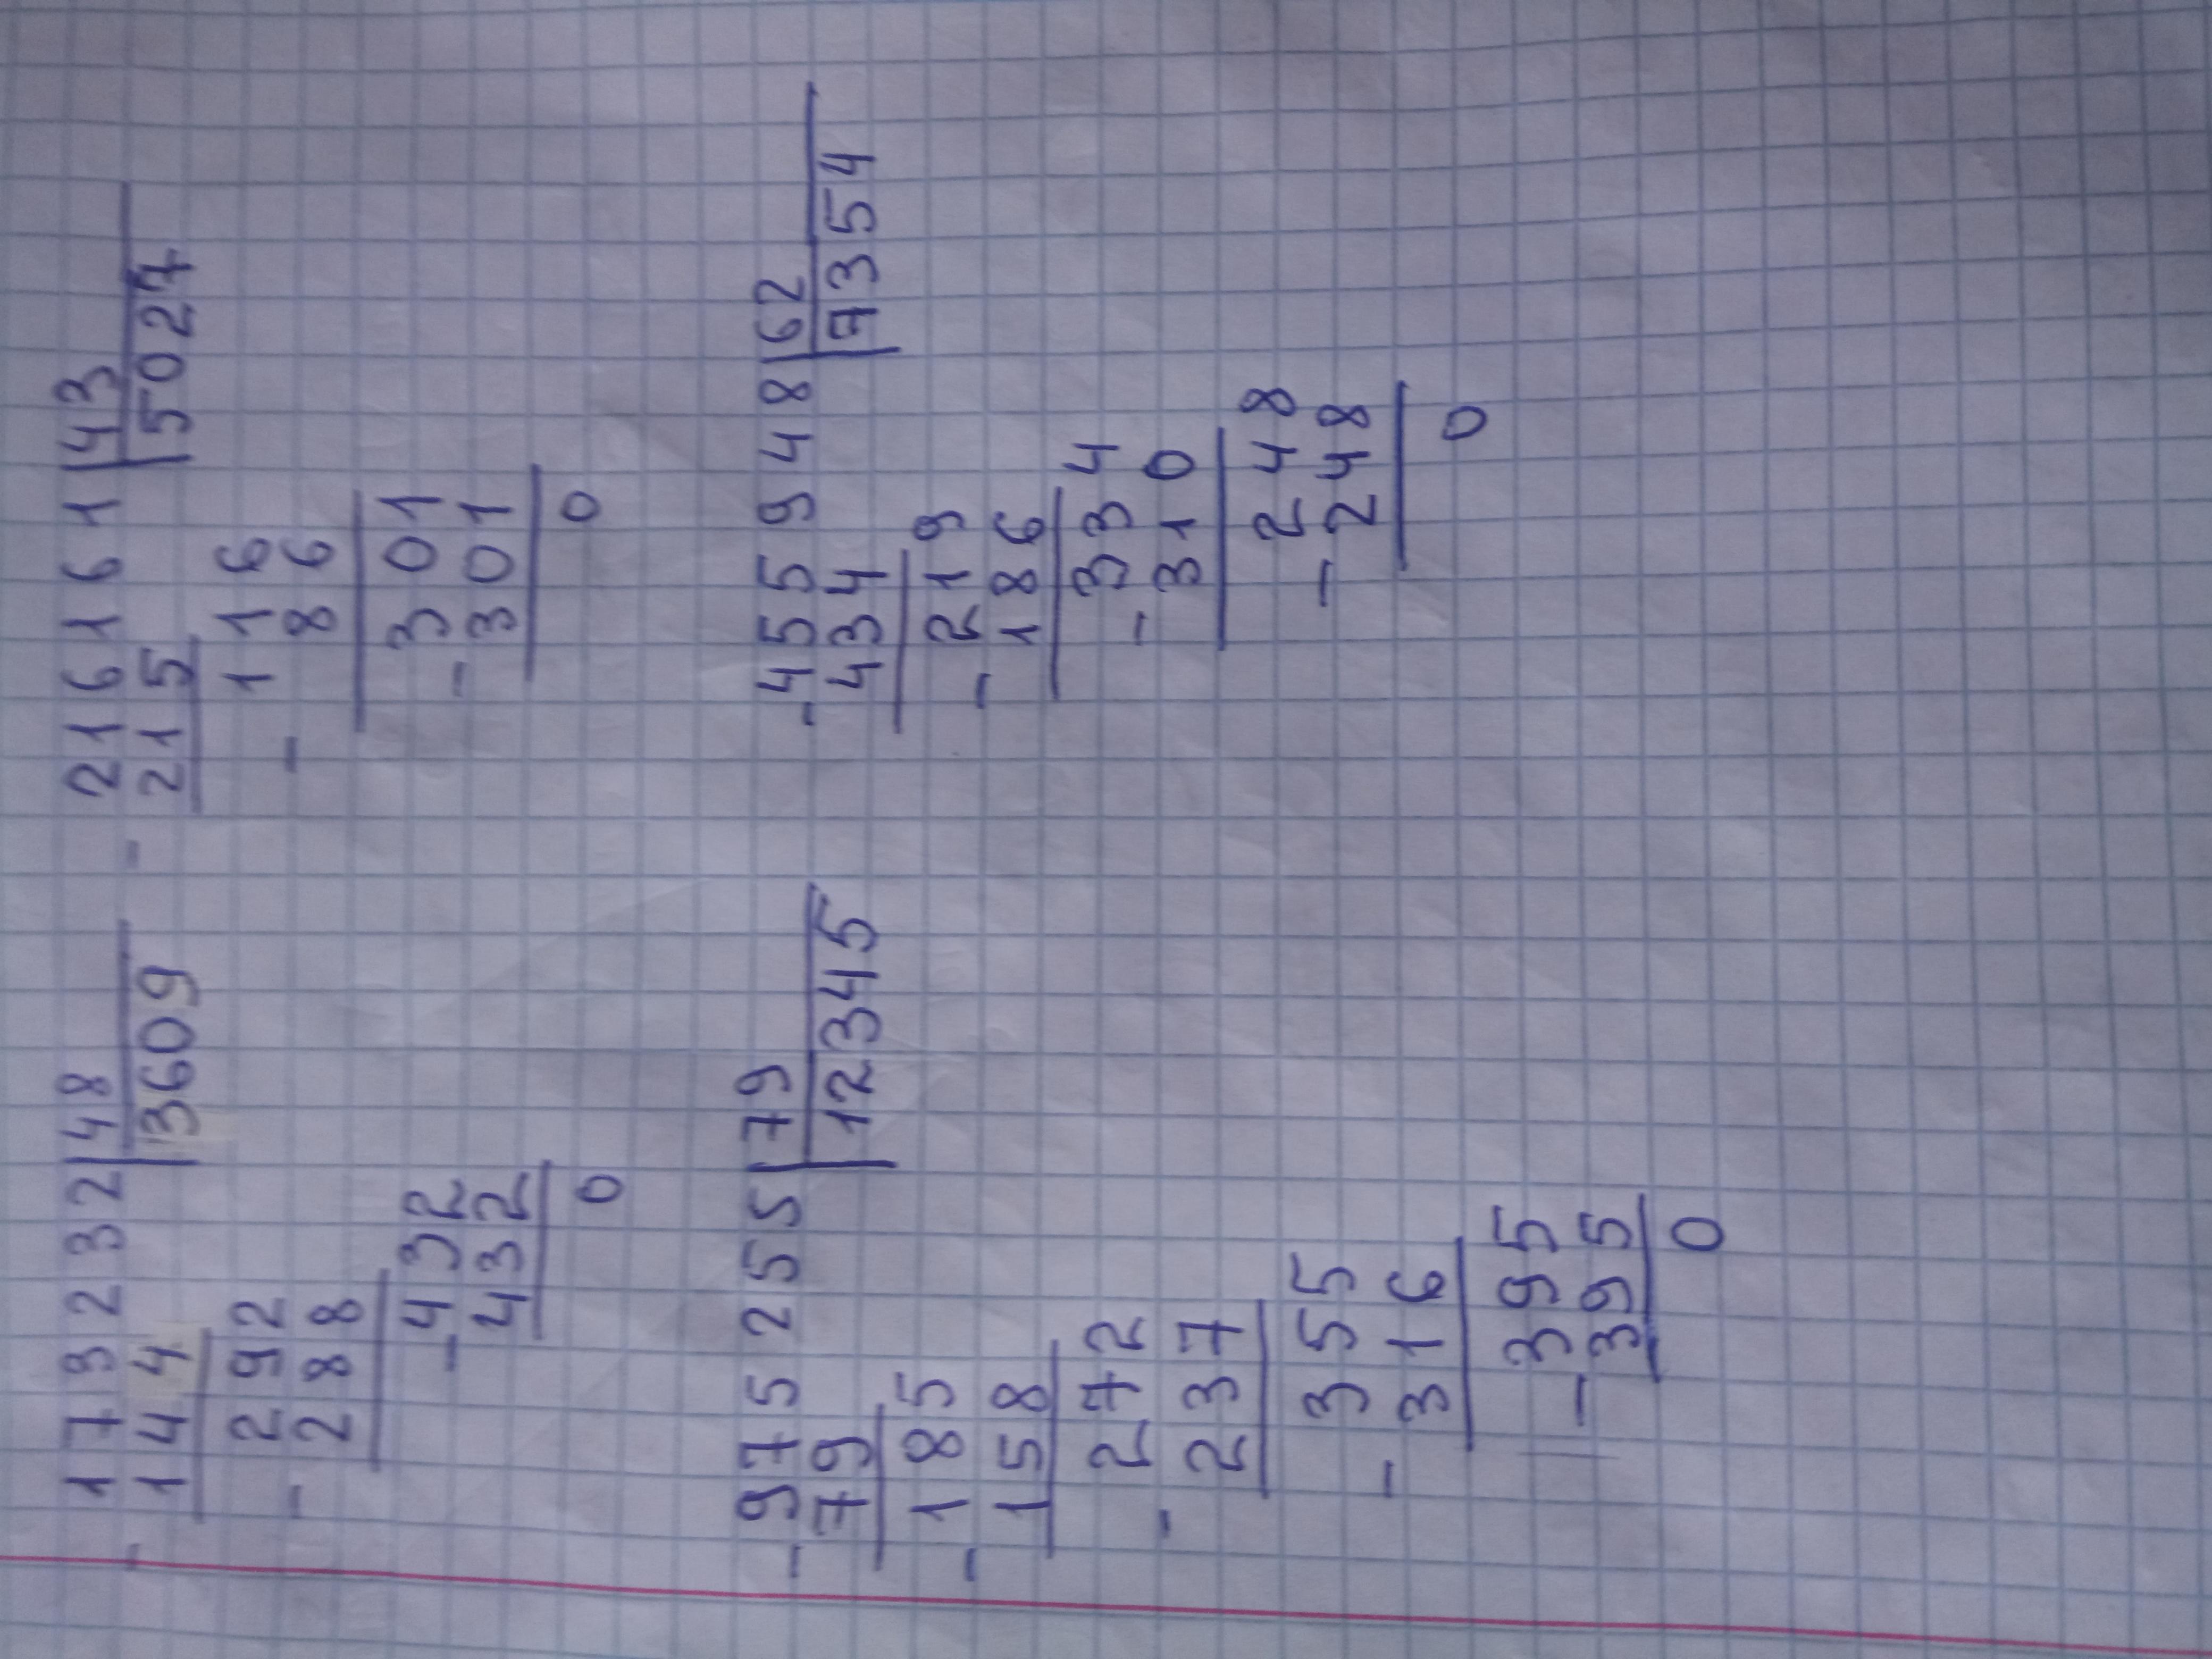 173232|48
- 144 |3609
292
- 288
-432
432
0
216161|43
- 215 |5027
116
- 86
301
- 301
0
- 975255|79
79 |12345
185
- 158
272
- 237
355
- 316
395
- 395
0
- 455948|62
434 |7354
219
- 186
334
- 310
248
- 248
0